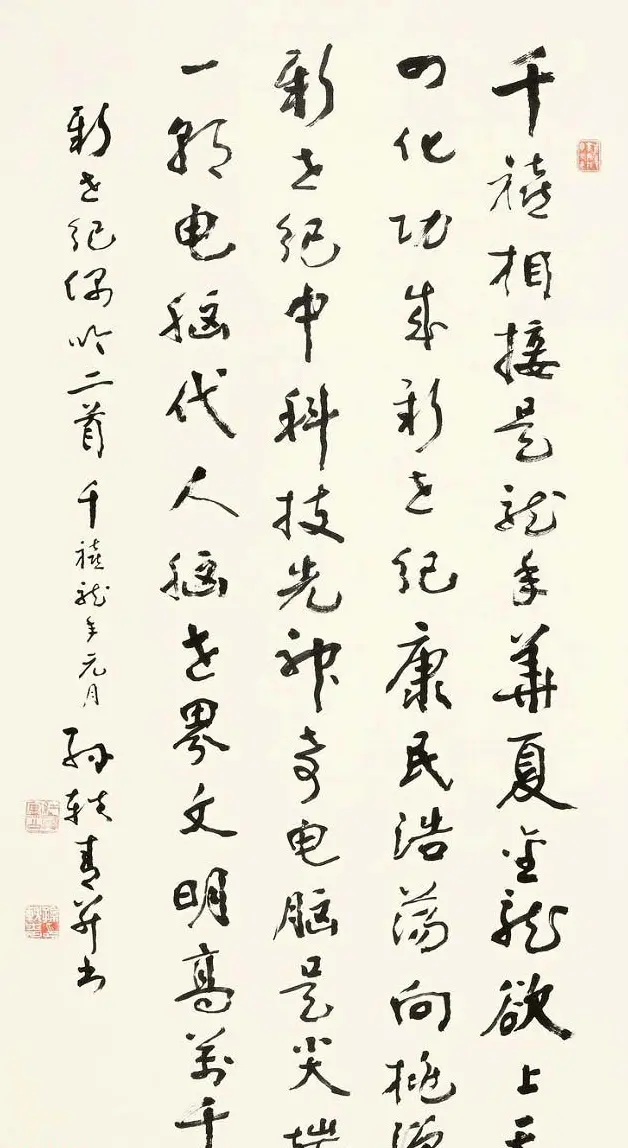 千禧相接是龙年華夏金龙欲上天
四化功成新世纪康民浩荡向桃源
新世纪中科技先神奇电脑是尖端
一颗电脑代人脑世界文明高万千
新世纪偶吟二首 千禧龙年元月 孙轶青并书